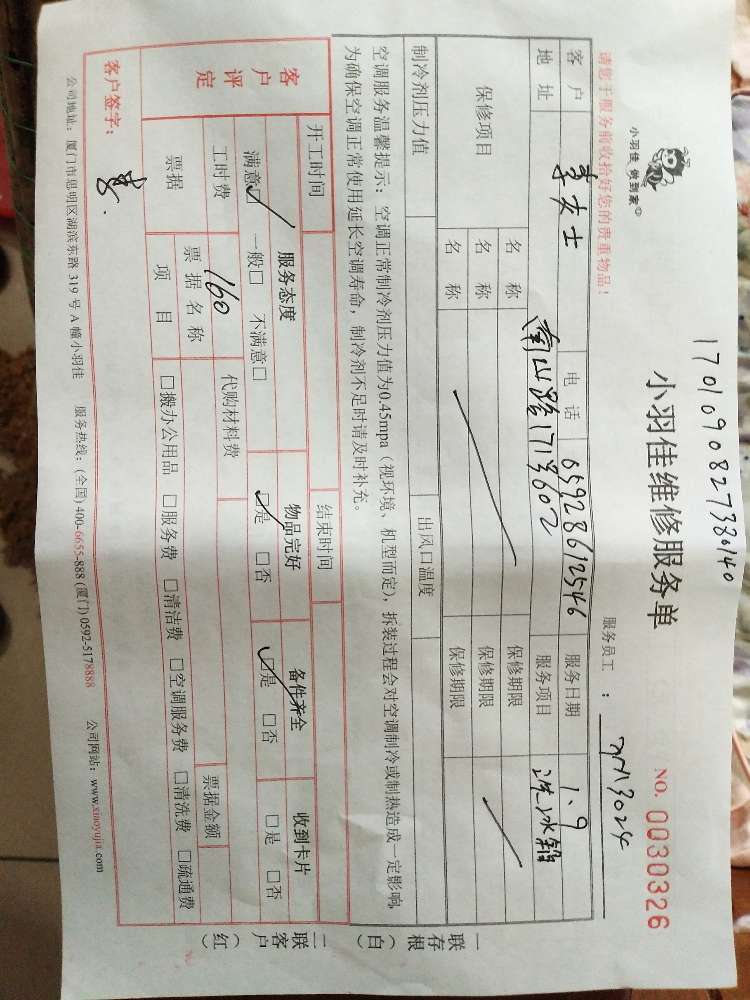 1701090827380140
小羽佳 做到家
小羽佳维修服务单
NO. 0030326
请您于服务前收拾好您的贵重物品!
服务员工:
客户 李女士 电话 65928612546 服务日期 1.9
地址 南山路171号602 服务项目 洗冰箱
保修项目 名称 保修期限
名称 保修期限
名称 保修期限
制冷剂压力值 出风口温度
空调服务温馨提示:空调正常制冷剂压力值为0.45mpa(视环境、机型而定),拆装过程会对空调制冷或制热造成一定影响,
为确保空调正常使用延长空调寿命,制冷剂不足时请及时补充。
开工时间 结束时间
客户评定 服务态度 物品完好 备件齐全 收到卡片
满意☑ 一般□ 不满意□ ☑是 □否 ☑是 □否 □是 □否
工时费 160 代购材料费
票据 票据名称 票据金额
项目 □搬办公用品 □服务费 □清洁费 □空调服务费 □清洗费 □疏通费
客户签字: 李
公司地址:厦门市思明区湖滨东路 319 号 A 幢小羽佳 服务热线:(全国) 400-6655-888 (厦门) 0592-5178888 公司网站:www.xiaoyujia.com
一联存根(白)
二联客户(红)